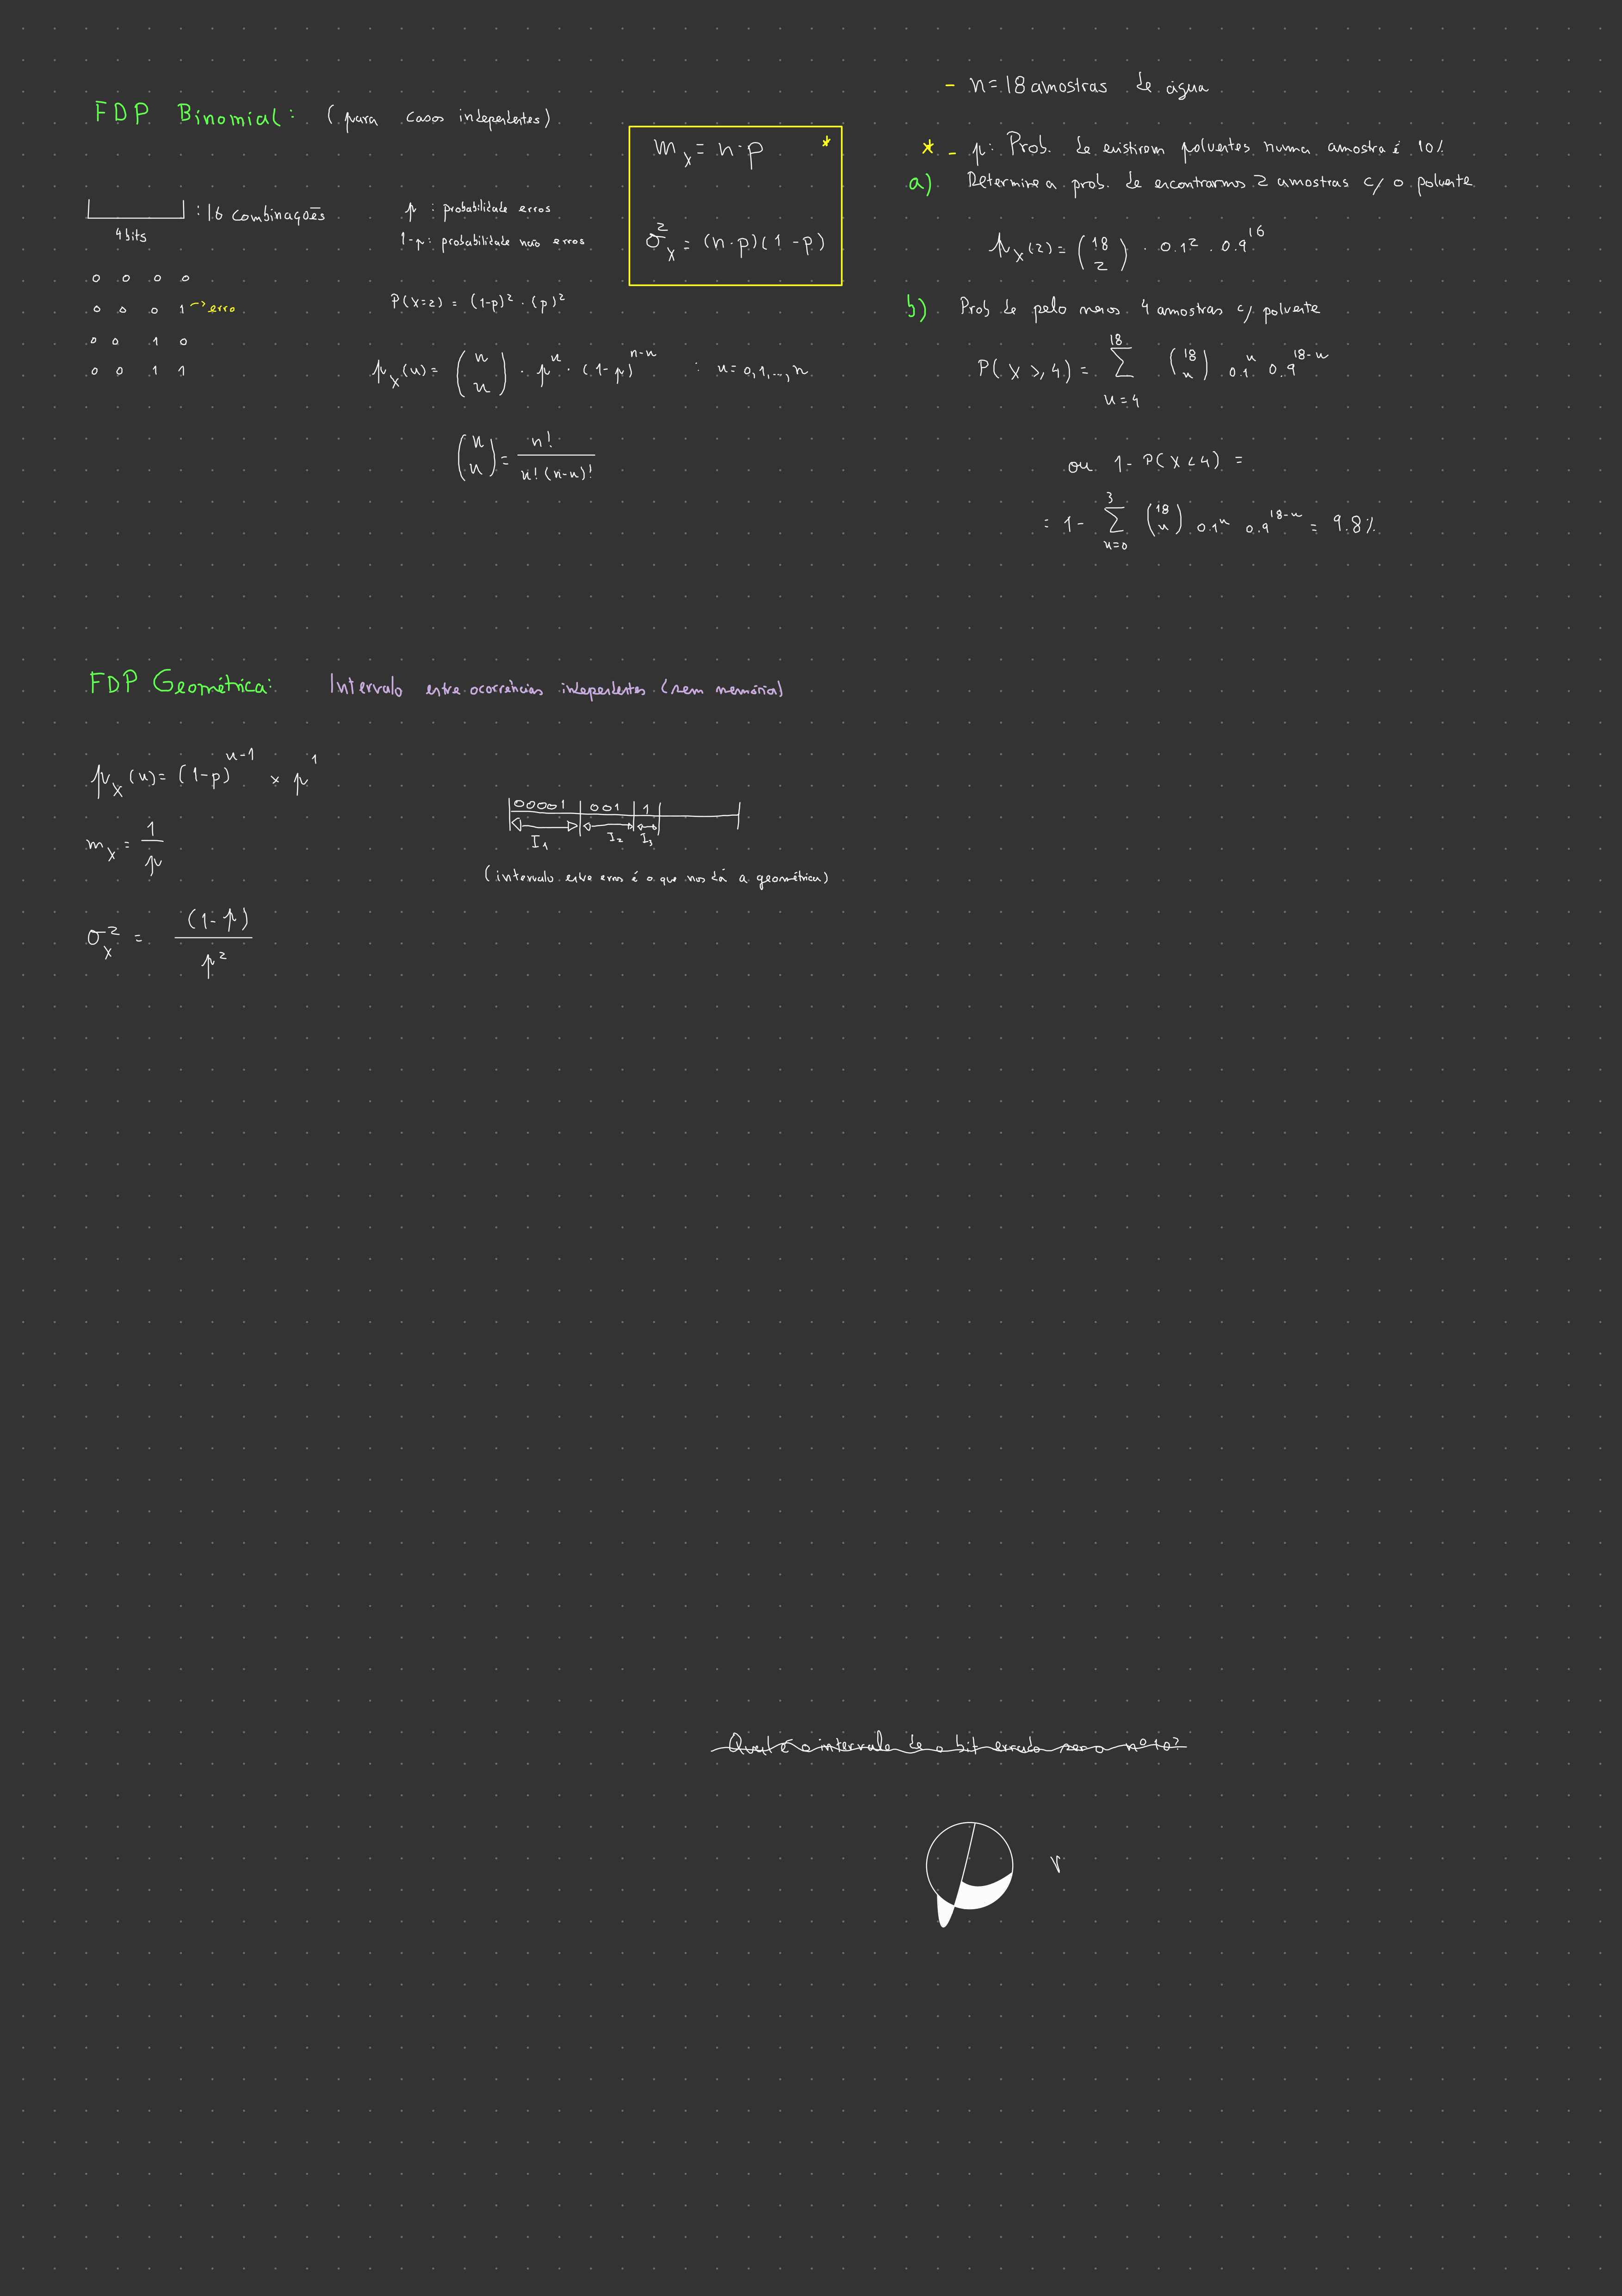 FDP Binomial: (para casos independentes)
: 16 combinações
4 bits
0 0 0 0
0 0 0 1 -> erro
0 0 1 0
0 0 1 1
p : probabilidade erros
1-p : probabilidade não erros
P(X=2) = (1-p)² · (p)²
p_X(x) = (n x) · p^x · (1-p)^(n-x) : x = 0,1,...,n
(n x) = n! / x!(n-x)!
m_X = n·p *
σ²_X = (n·p)(1-p)
- n = 18 amostras de água
* - p: Prob. de existirem poluentes numa amostra é 10%
a) Determine a prob. de encontrarmos 2 amostras c/ o poluente
p_X(2) = (18 2) · 0.1² · 0.9^16
b) Prob de pelo menos 4 amostras c/ poluente
P(X ≥ 4) = 18 Σ x=4 (18 x) 0.1^x 0.9^(18-x)
ou 1 - P(X < 4) =
= 1 - 3 Σ x=0 (18 x) 0.1^x 0.9^(18-x) = 9.8%
FDP Geométrica: Intervalo entre ocorrências independentes (sem memória)
p_X(x) = (1-p)^(x-1) × p^1
m_X = 1/p
σ²_X = (1-p) / p²
00001 001 1
I₁ I₂ I₃
(intervalo entre erros é o que nos dá a geométrica)
Qual é o intervalo de o bit errado ser o nº 10?